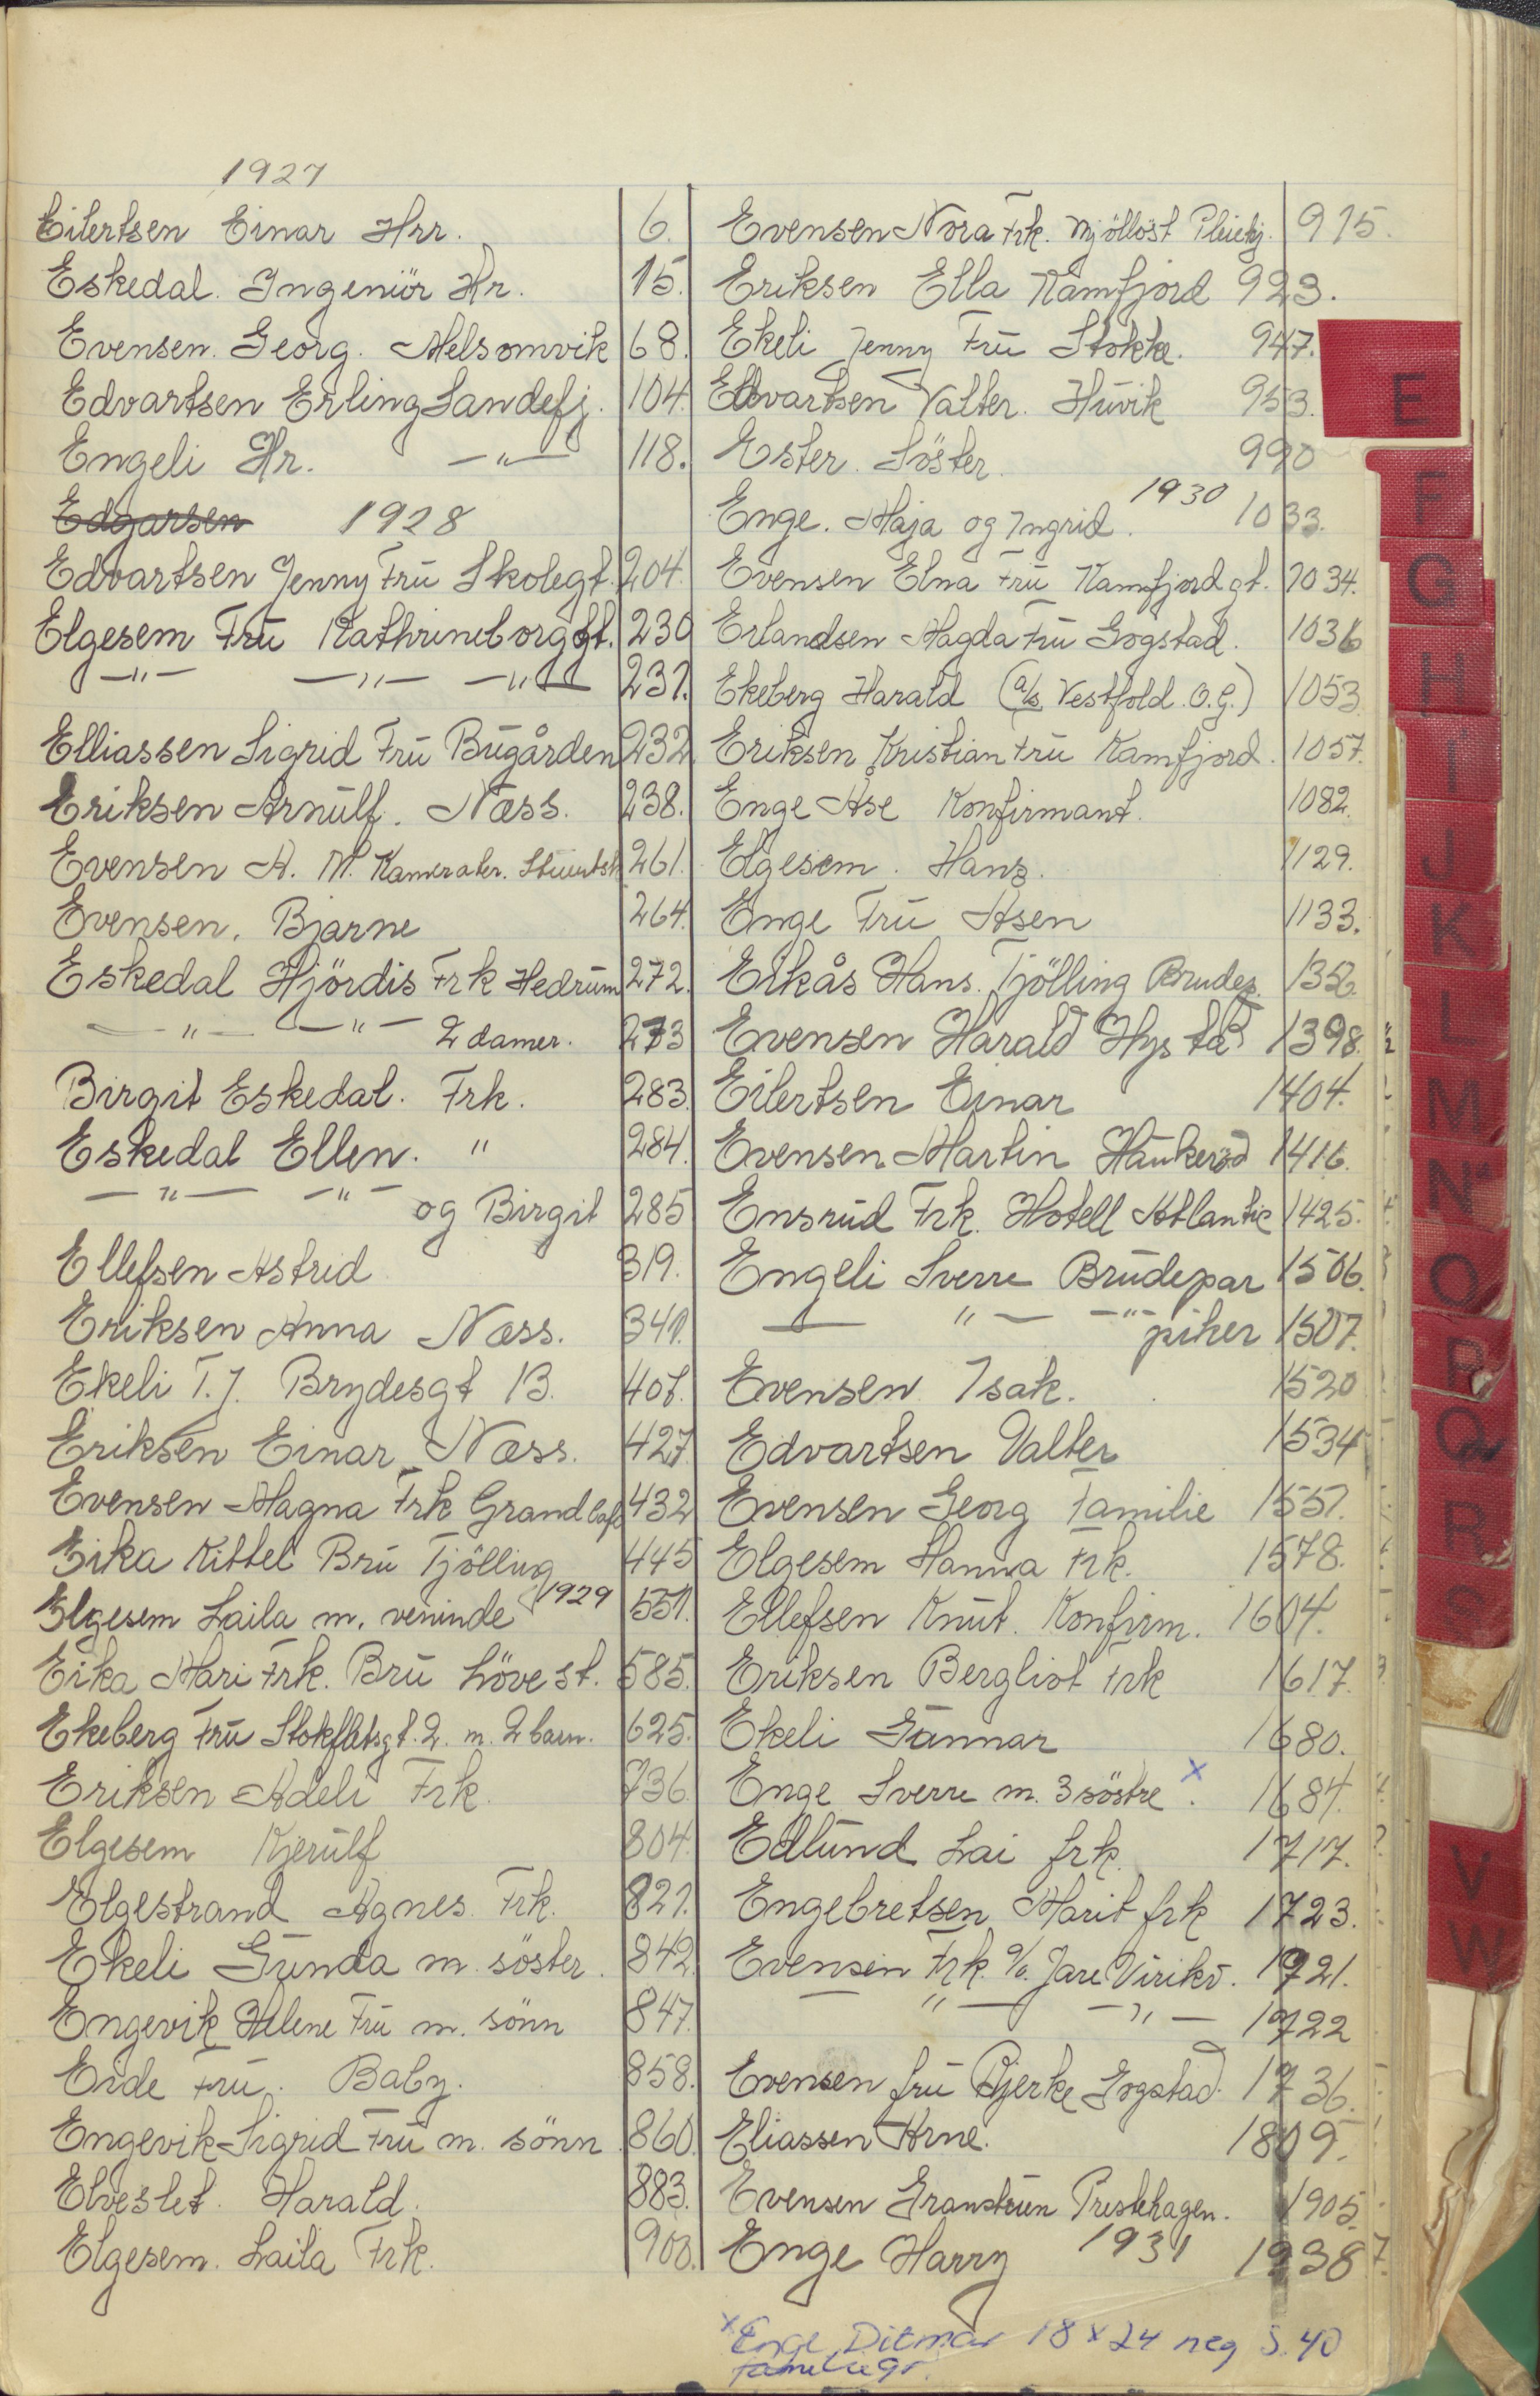 1927
Eilertsen Einar Hrr. 6.
Eskedal. Ingeniör Hr. 15.
Evensen. Georg. Melsomvik 68.
Edvartsen Erling Sandefj. 104.
Engeli Hr. —"— 118.
Edgarsen 1928
Edvartsen Jenny Frū Skolegt. 204.
Elgesem Frū Kathrineborggt. 230
—"— —"— —"— 231.
Elliassen Sigrid Frū Būgården 232
Eriksen Arnūlf. Næss. 238.
Evensen A. M. Kamerater. 261.
Evensen. Bjarne 264.
Eskedal Hjördis Frk Hedrūm 272.
—"— —"— 2 damer. 273
Birgit Eskedal. Frk. 283.
Eskedal Ellen. " 284.
—"— —"— og Birgit 285
Ellefsen Astrid 319.
Eriksen Anna Næss. 341.
Ekeli T.J. Brydesgt 13. 407.
Eriksen Einar Næss. 427.
Evensen Magna Frk Grand Cafe 432
Eika Kittel Brū Tjölling 445
Elgesem Laila m. veninde 1929 551.
Eika Mari Frk. Brū Löve st. 585.
Ekeberg Frū Stokfletsgt. 2. m. 2 barn. 625.
Eriksen Adeli Frk. 736.
Elgesem Kjerūlf 804.
Elgestrand Agnes Frk. 821.
Ekeli Gūnda m. söster. 842.
Engevik Helene Frū m. sönn 847.
Eide Frū. Baby. 858.
Engevik Sigrid Frū m. sönn 860.
Elveslet. Harald. 883.
Elgesem. Laila Frk. 900.
Evensen Nora Frk. Mjöllöst 915.
Eriksen Ella Kamfjord 923.
Ekeli Jenny Frū Stokke. 947.
Edvartsen Valter. Hūvik 953.
Ester. Söster. 990
Enge. Maja og Ingrid. 1930 1033.
Evensen Elna Frū Kamfjordgt. 1034.
Erlandsen Magda Frū Gogstad. 1036
Ekeberg Harald (A/s Vestfold. O.G.) 1053.
Eriksen Kristian Frū Kamfjord. 1057.
Enge Åse Konfirmant. 1082.
Elgesem. Hans. 1129.
Enge Frū Åsen 1133.
Eikås Hans. Tjölling Brudep. 1352.
Evensen Harald Hystad 1398.
Eilertsen Einar 1404.
Evensen Martin Haukeröd 1416.
Ensrūd Frk. Hotell Atlantic 1425.
Engeli Sverre Brūdepar 1506.
—"— —"— piker 1507.
Evensen Isak. 1520
Edvartsen Valter 1534
Evensen Georg Familie 1557.
Elgesem Hanna Frk. 1578.
Ellefsen Knūt. Konfirm. 1604.
Eriksen Bergliot Frk 1617.
Ekeli Gūnnar 1680.
Enge Sverre m. 3 söstre. x 1684.
Edlūnd Lai frk. 1717.
Engebretsen Marit frk 1723.
Evensen Frk. c/o. Jare Virikv. 1921.
—"— —"— 1922
Evensen frū Bjerke Gogstad. 1736.
Eliassen Arne. 1809.
Evensen Prestehagen. 1905.
Enge Harry 1931 1938
x Enge, Ditmar 18 x 24 neg S. 40
familiegr.
E
F
G
H
I
J
K
L
M
N
O
P
Q
R
S
V
W